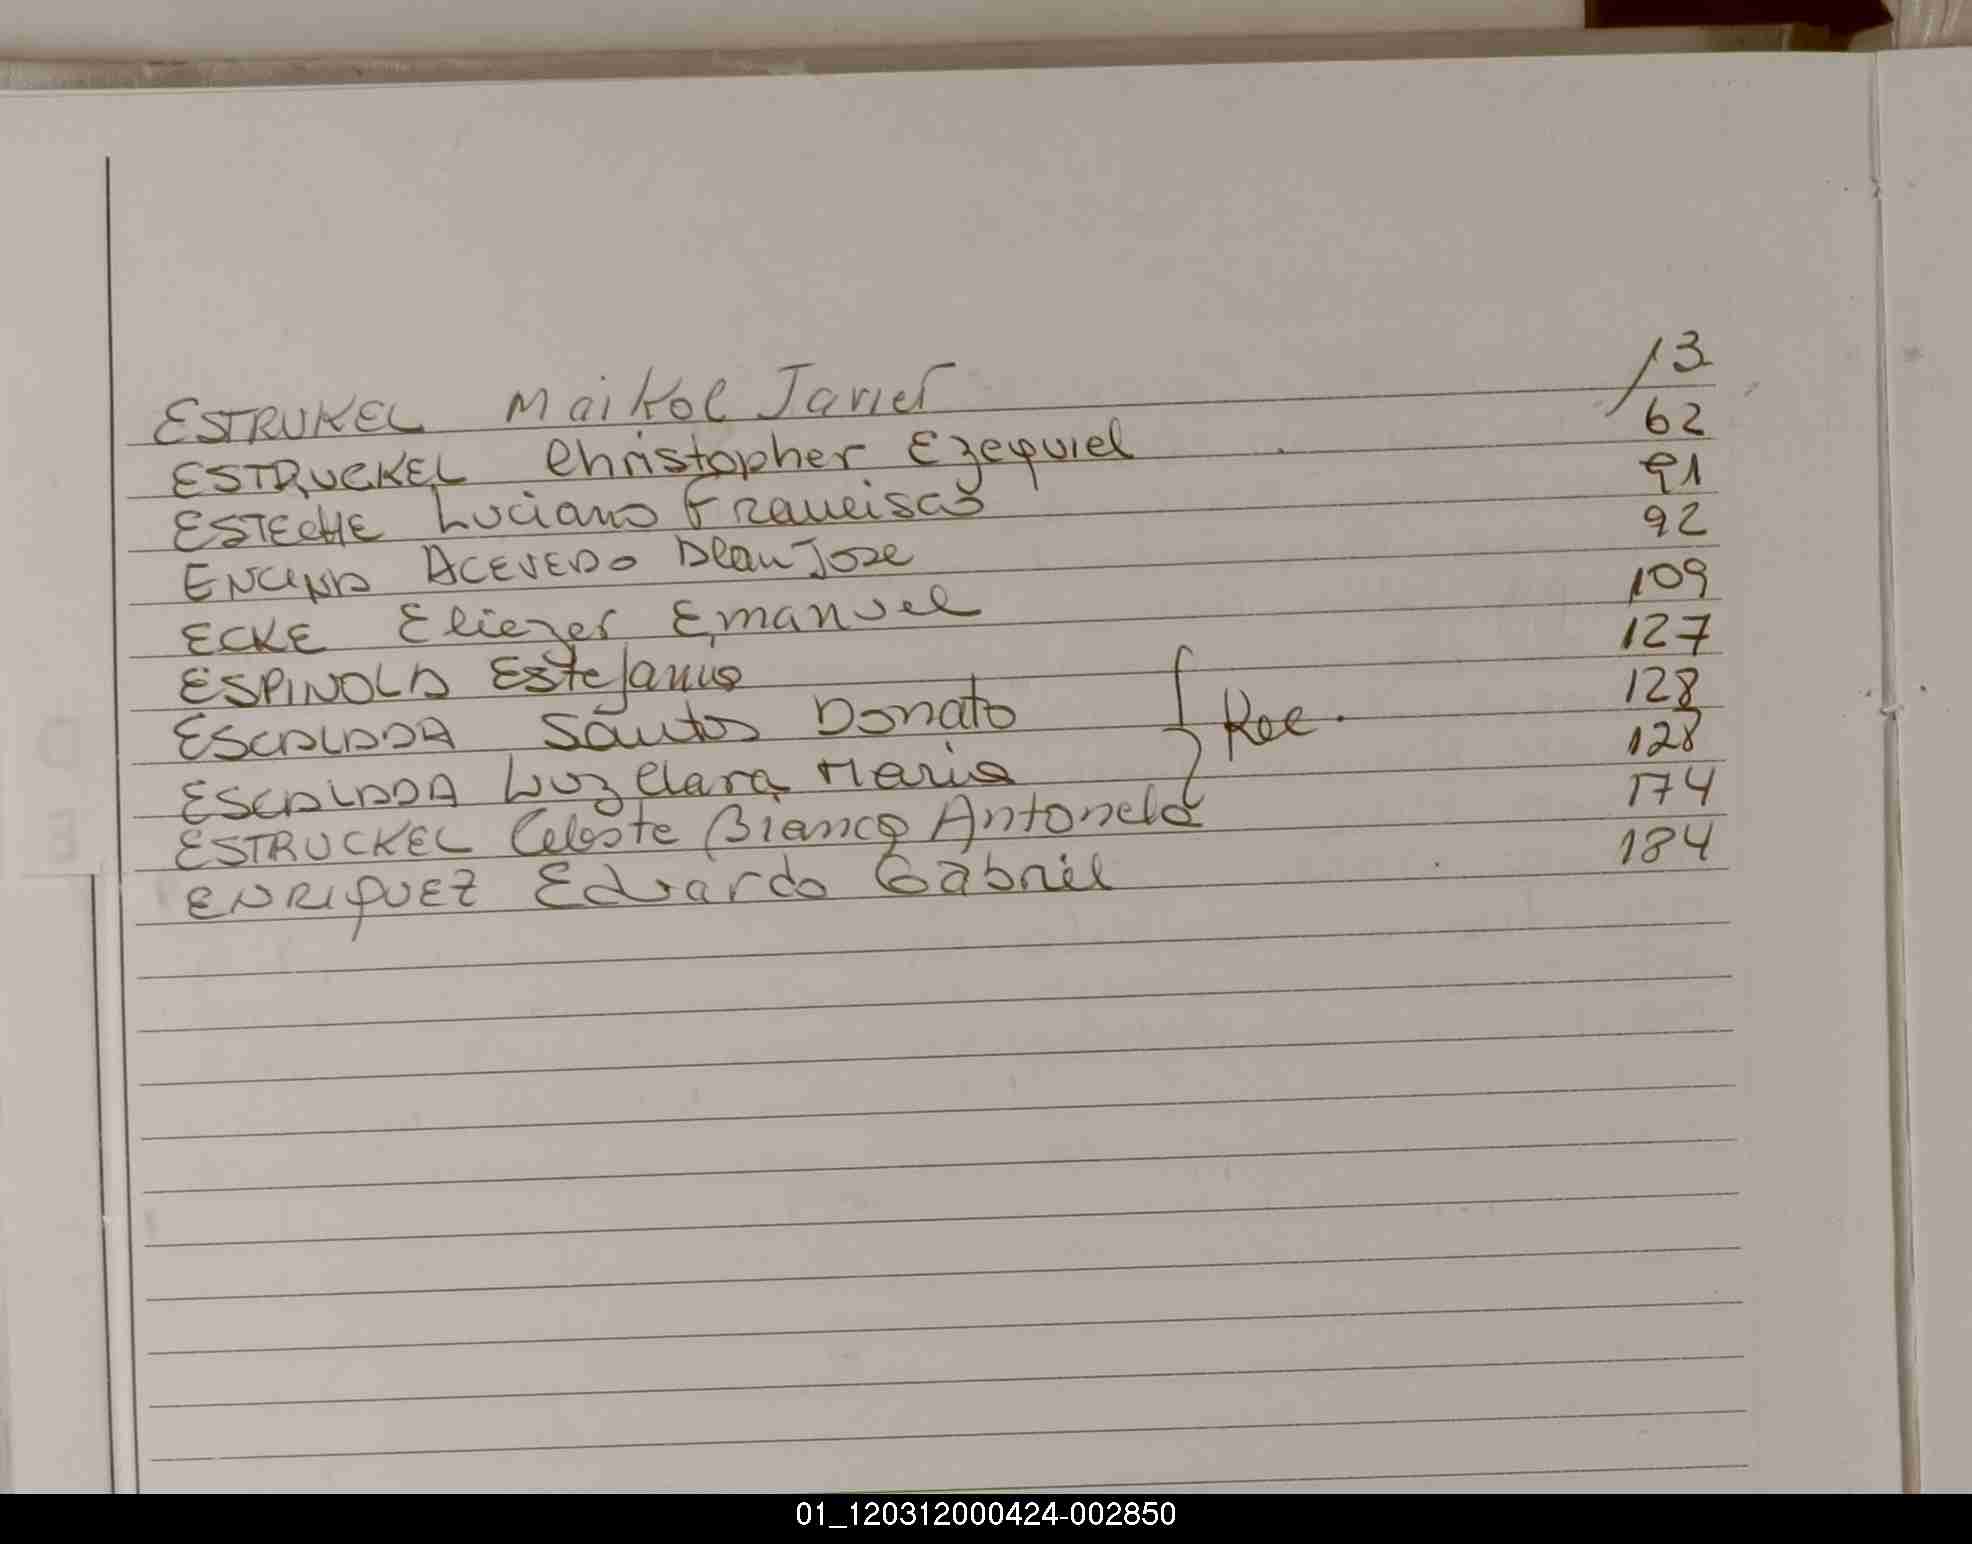 ESTRUKEL Maikol Javier 13
ESTRUCKEL Christopher Ezequiel 62
ESTECHE Luciano Francisco 91
ENCINA ACEVEDO Dlan Jose 92
ECKE Eliezer Emanuel 109
ESPINOLA Estefania 127
ESCALADA Santos Donato 128
Rec.
ESCALADA Luz Clara Maria 128
ESTRUCKEL Celeste Bianca Antonela 174
ENRIQUEZ Eduardo Gabriel 184
01_120312000424-002850